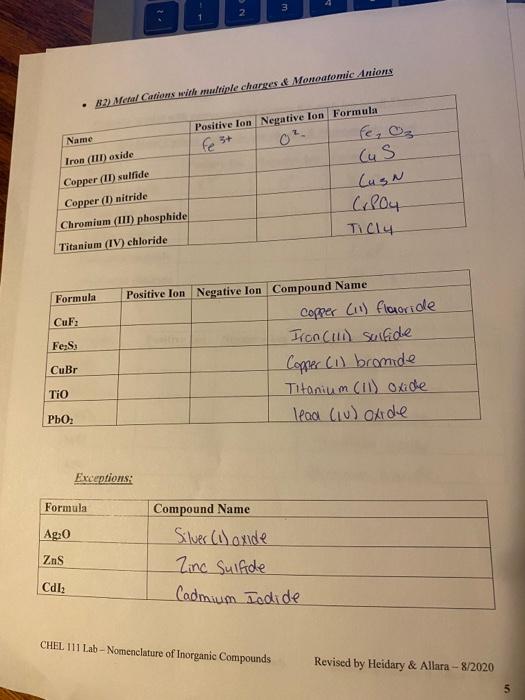 1 2 3 4
• B2) Metal Cations with multiple charges & Monoatomic Anions
Name Positive Ion Negative Ion Formula
Iron (III) oxide Fe3+ O2- Fe2 O3
Copper (II) sulfide CuS
Copper (I) nitride Cu3N
Chromium (III) phosphide CrPO4
Titanium (IV) chloride TiCl4
Formula Positive Ion Negative Ion Compound Name
CuF2 copper (II) fluoride
Fe2S3 Iron (III) sulfide
CuBr Copper (I) bromide
TiO Titanium (II) oxide
PbO2 lead (IV) oxide
Exceptions:
Formula Compound Name
Ag2O Silver (I) oxide
ZnS Zinc Sulfide
CdI2 Cadmium Iodide
CHEL 111 Lab – Nomenclature of Inorganic Compounds Revised by Heidary & Allara – 8/2020
5